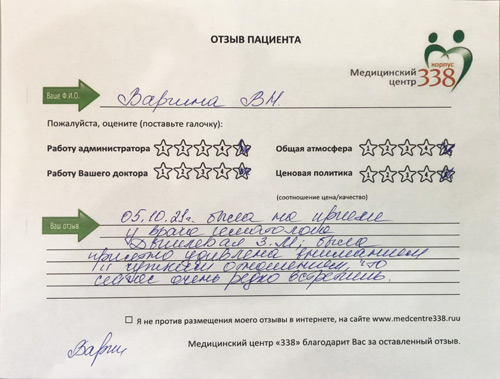 ОТЗЫВ ПАЦИЕНТА
корпус
Медицинский центр 338
Ваше Ф.И.О. Варгина ВН
Пожалуйста, оцените (поставьте галочку):
Работу администратора 1 2 3 4 Общая атмосфера 1 2 3 4
Работу Вашего доктора 1 2 3 4 Ценовая политика 1 2 3 4
(соотношение цена/качество)
Ваш отзыв 05.10.21г. была на приеме
у врача гематолога
З.М; была
приятно удивлена вниманием
и чутким отношением, что
сейчас очень редко встретишь.
Я не против размещения моего отзывы в интернете, на сайте www.medcentre338.ruu
Медицинский центр «338» благодарит Вас за оставленный отзыв.